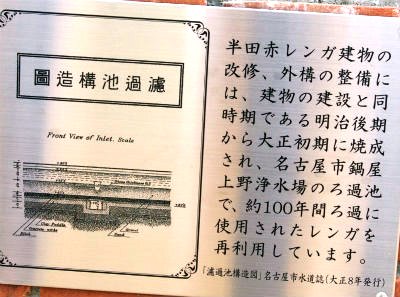 圖造構池過濾
Front View of Inlet. Scale
半田赤レンガ建物の
改修、外構の整備に
は、建物の建設と同
時期である明治後期
から大正初期に焼成
され、名古屋市鍋屋
上野浄水場のろ過池
で、約100年間ろ過に
使用されたレンガを
再利用しています。
「濾過池構造図」名古屋市水道誌(大正8年発行)